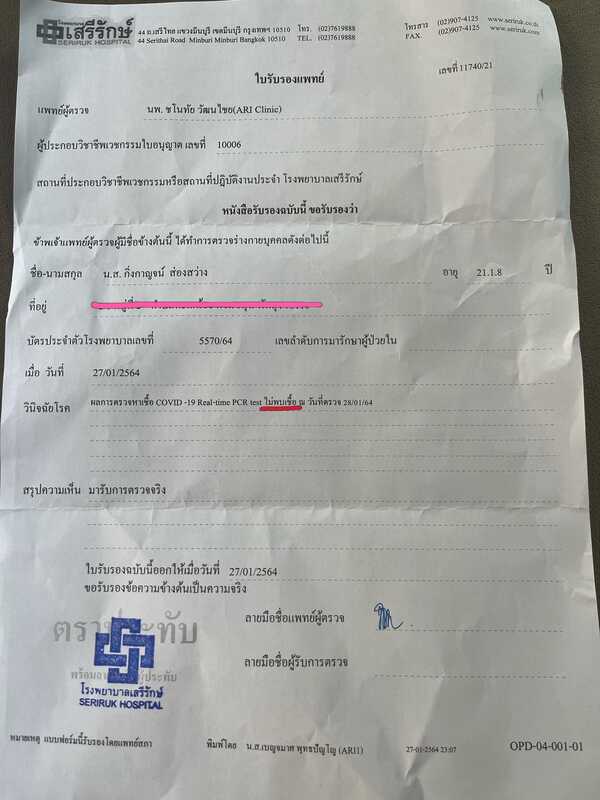 โรงพยาบาล
เสรีรักษ์
SERIRUK HOSPITAL
44 ถ.เสรีไทย แขวงมีนบุรี เขตมีนบุรี กรุงเทพฯ 10510 โทร. (02)7619888
44 Serithai Road Minburi Minburi Bangkok 10510 TEL. (02)7619888
โทรสาร (02)907-4125 www.seriruk.co.th
FAX. (02)907-4125 www.seriruk.com
ใบรับรองแพทย์
เลขที่ 11740/21
แพทย์ผู้ตรวจ นพ. ชโนทัย วัฒนไชย(ARI Clinic)
ผู้ประกอบวิชาชีพเวชกรรมใบอนุญาต เลขที่ 10006
สถานที่ประกอบวิชาชีพเวชกรรมหรือสถานที่ปฏิบัติงานประจำ โรงพยาบาลเสรีรักษ์
หนังสือรับรองฉบับนี้ ขอรับรองว่า
ข้าพเจ้าแพทย์ผู้ตรวจผู้มีชื่อข้างต้นนี้ ได้ทำการตรวจร่างกายบุคคลดังต่อไปนี้
ชื่อ-นามสกุล น.ส. กิ่งกาญจน์ ส่องสว่าง อายุ 21.1.8 ปี
ที่อยู่
บัตรประจำตัวโรงพยาบาลเลขที่ 5570/64 เลขลำดับการมารักษาผู้ป่วยใน
เมื่อ วันที่ 27/01/2564
วินิจฉัยโรค ผลการตรวจหาเชื้อ COVID -19 Real-time PCR test ไม่พบเชื้อ ณ วันที่ตรวจ 28/01/64
สรุปความเห็น มารับการตรวจจริง
ใบรับรองฉบับนี้ออกให้เมื่อวันที่ 27/01/2564
ขอรับรองข้อความข้างต้นเป็นความจริง
ลายมือชื่อแพทย์ผู้ตรวจ
ตราประทับ
ลายมือชื่อผู้รับการตรวจ
โรงพยาบาลเสรีรักษ์
SERIRUK HOSPITAL
หมายเหตุ แบบฟอร์มนี้รับรองโดยแพทย์สภา พิมพ์โดย น.ส.เบญจมาศ พุทธปัญโญ (ARI1) 27-01-2564 23:07 OPD-04-001-01